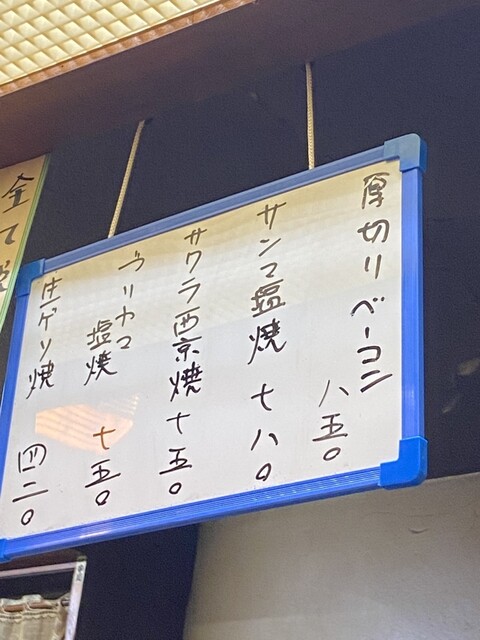 厚切りベーコン
八五〇
サンマ塩焼 七八〇
サワラ西京焼 七五〇
ブリカマ
塩焼 七五〇
生ゲソ焼 四二〇
全て